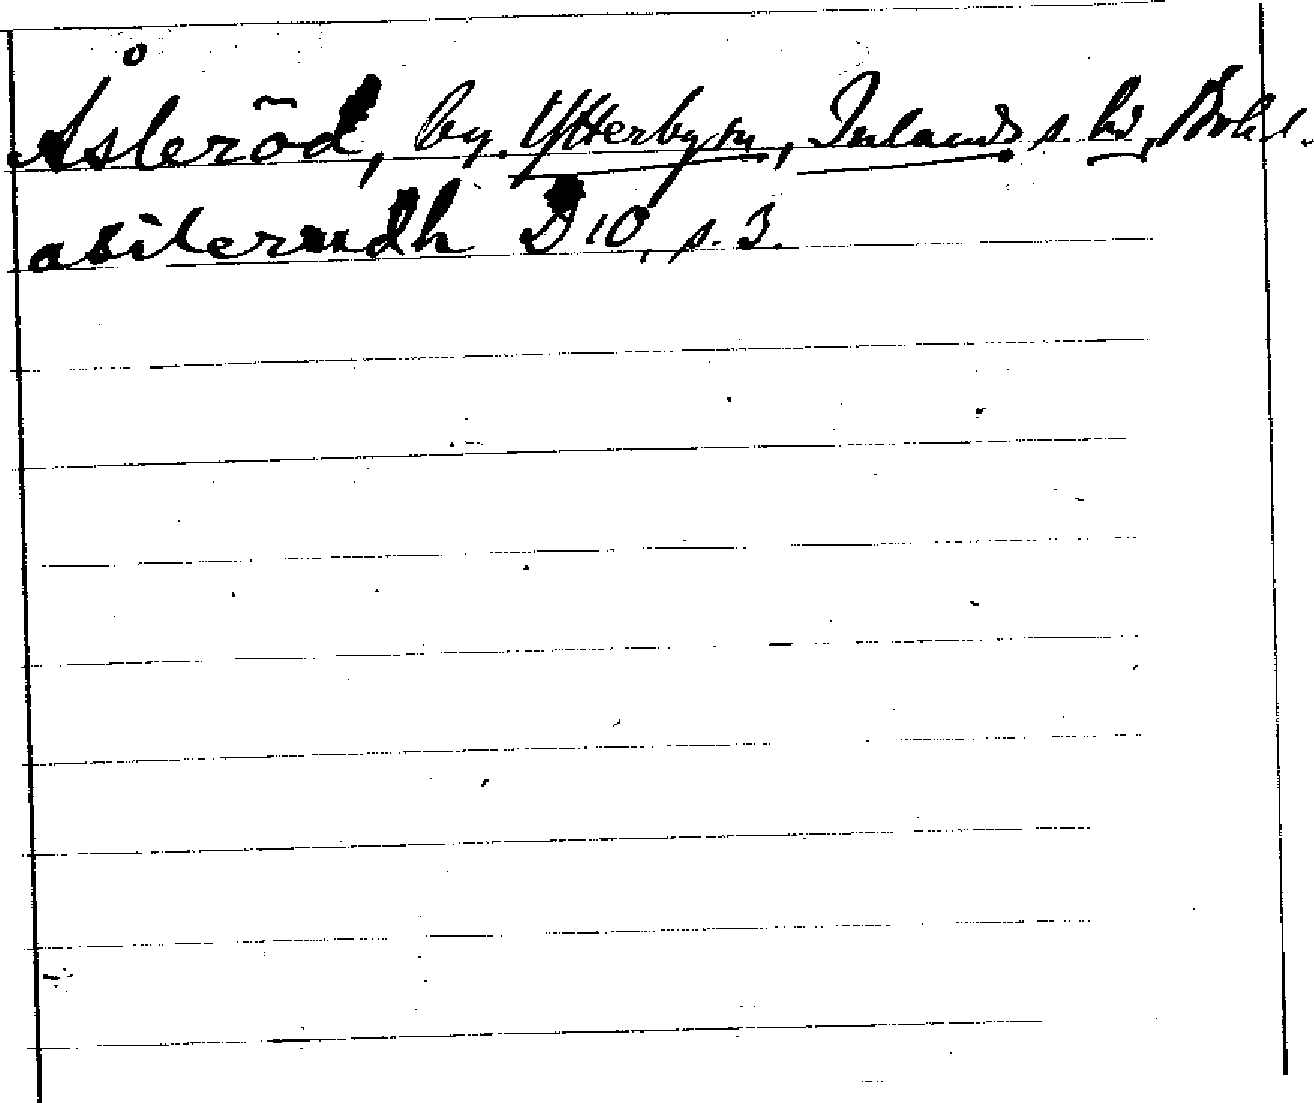 Åsleröd, by. Ytterby sn, Inlands s. hd, Bohl.
asilerudh D 10, s. 3.